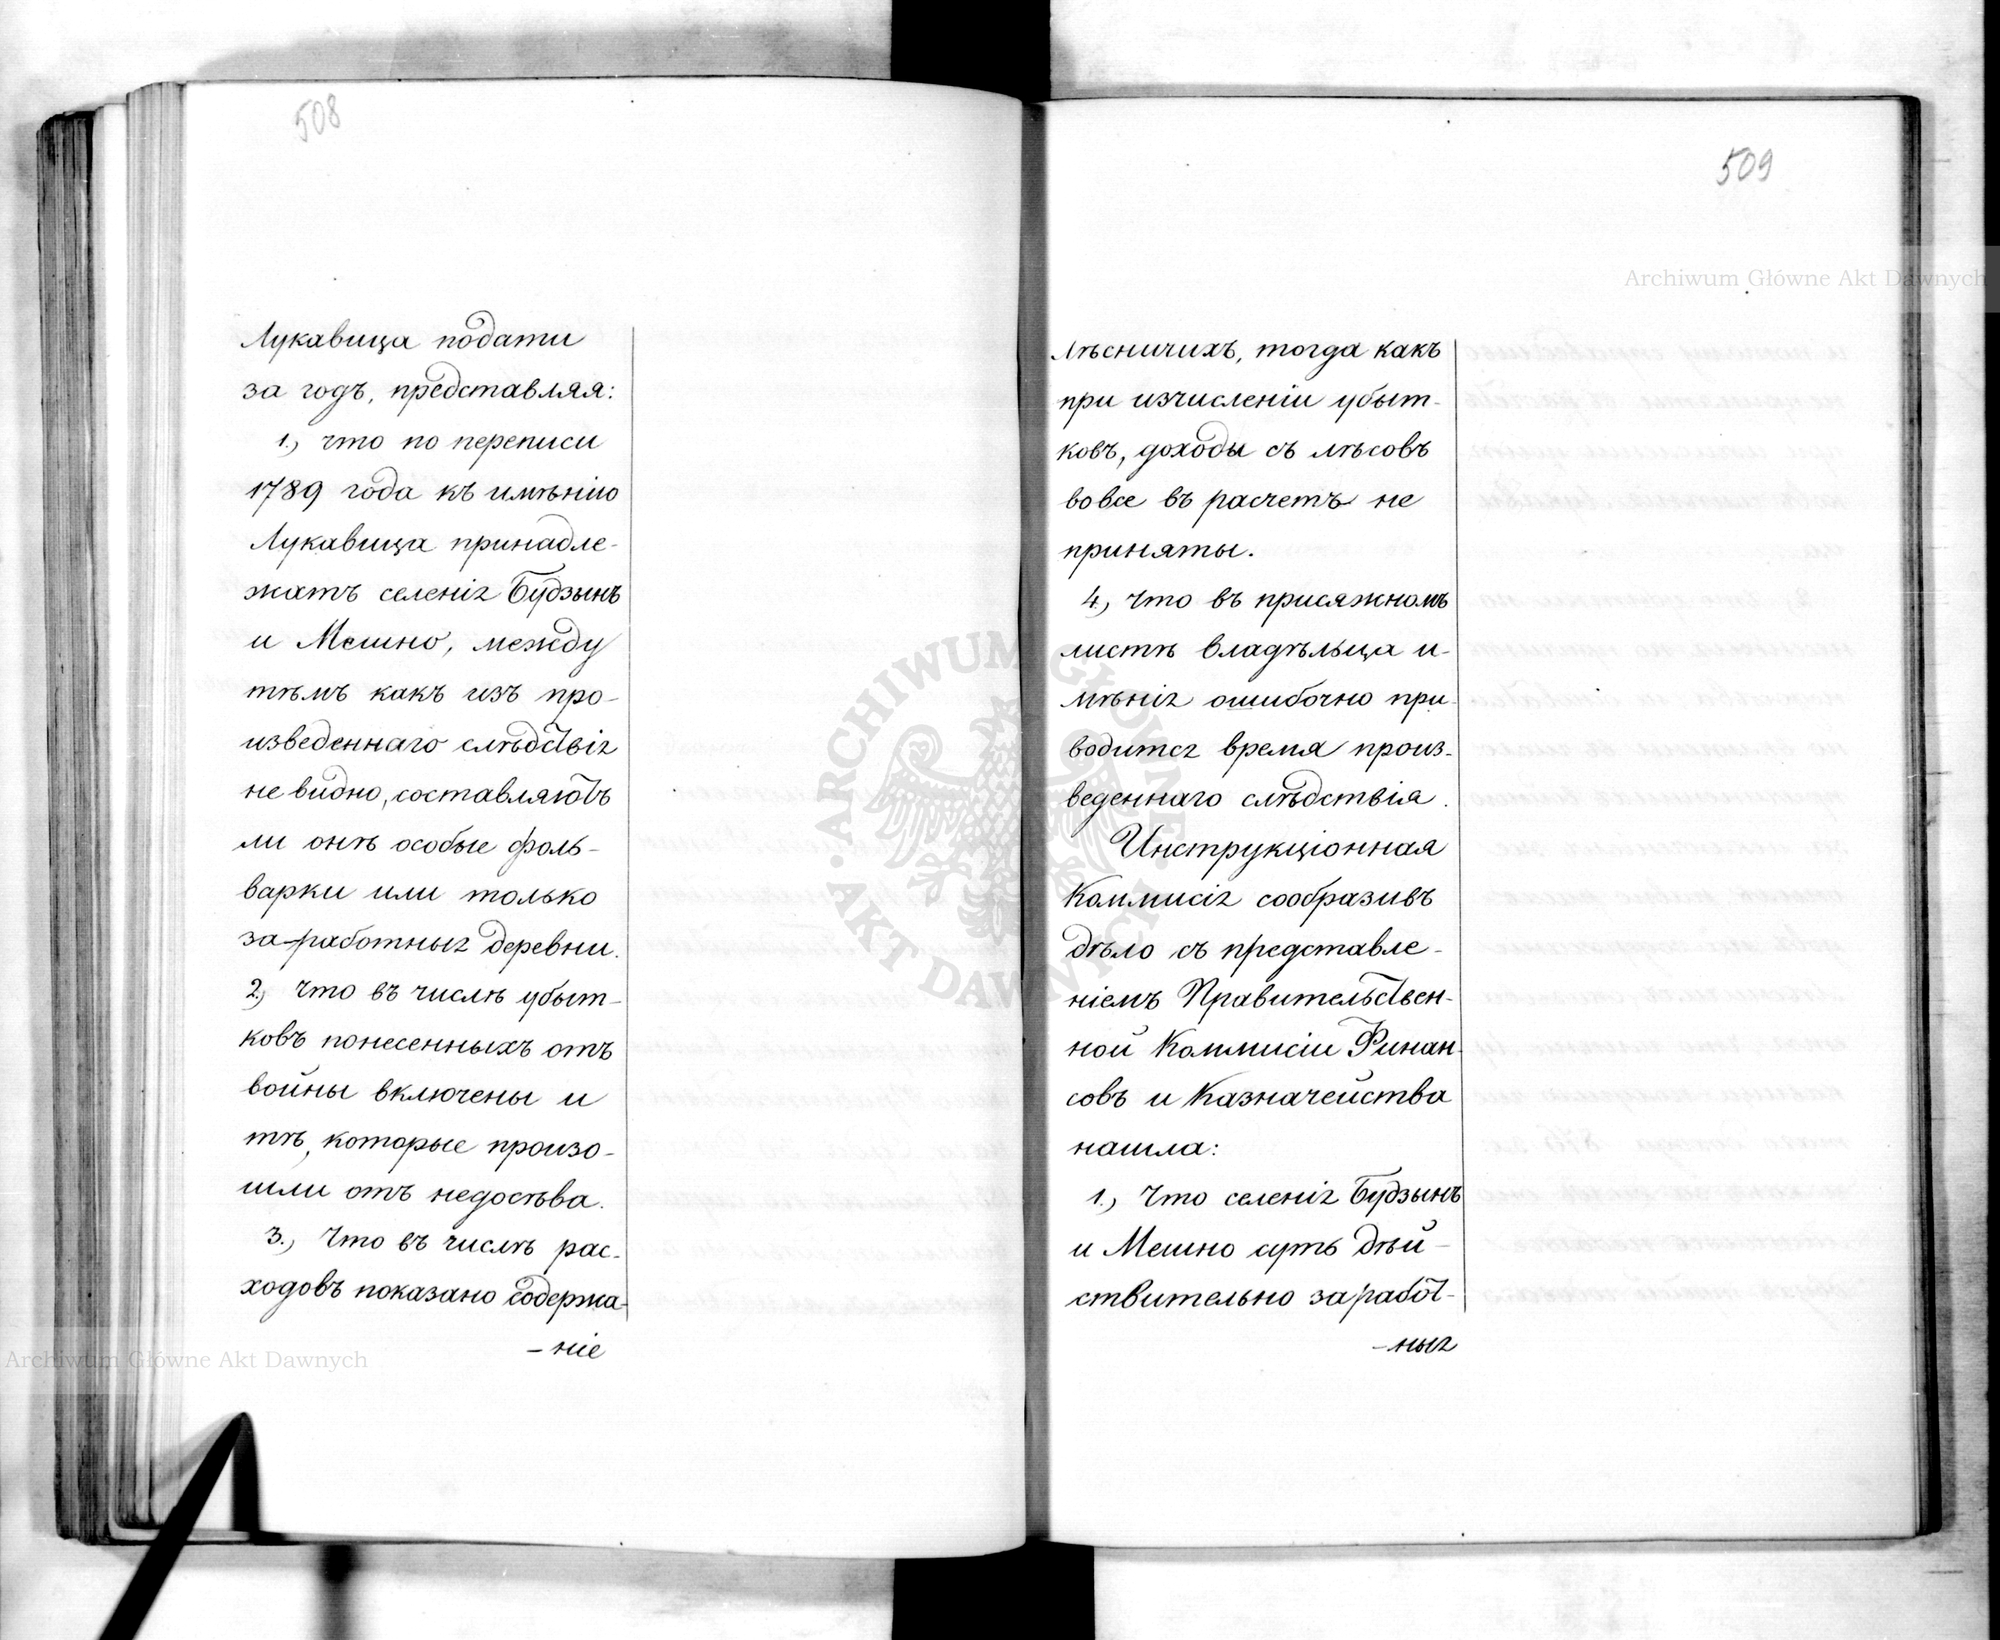 508
Лукавица подати
за годъ, представляя:
1., что по переписи
1789 года къ имѣнію
Лукавица принадле-
жатъ селенія Будзынъ
и Мешно, между
тѣмъ какъ изъ про-
изведеннаго слѣдствія
не видно, составляютъ
ли онѣ особые фоль-
варки или только
за-работныя деревни.
2., Что въ числѣ убыт-
ковъ понесенныхъ отъ
войны включены и
тѣ, которые произо-
шли отъ недосѣва.
3., Что въ числѣ рас-
ходовъ показано содержа-
-ніе
509
лѣсничихъ, тогда какъ
при изчисленіи убыт-
ковъ, доходы съ лѣсовъ
вовсе въ расчетъ не
приняты.
4., Что въ присяжномъ
листѣ владѣльца и-
мѣнія ошибочно при-
водится время произ-
веденнаго слѣдствія.
Инструкціонная
Коммисія сообразивъ
дѣло съ представле-
ніемъ Правительствен-
ной Коммисіи Финан-
совъ и Казначейства
нашла:
1., Что селенія Будзынъ
и Мешно суть дѣй-
ствительно заработ-
-ныя
Archiwum Główne Akt Dawnych
Archiwum Główne Akt Dawnych
ARCHIWUM GŁÓWNE AKT DAWNYCH